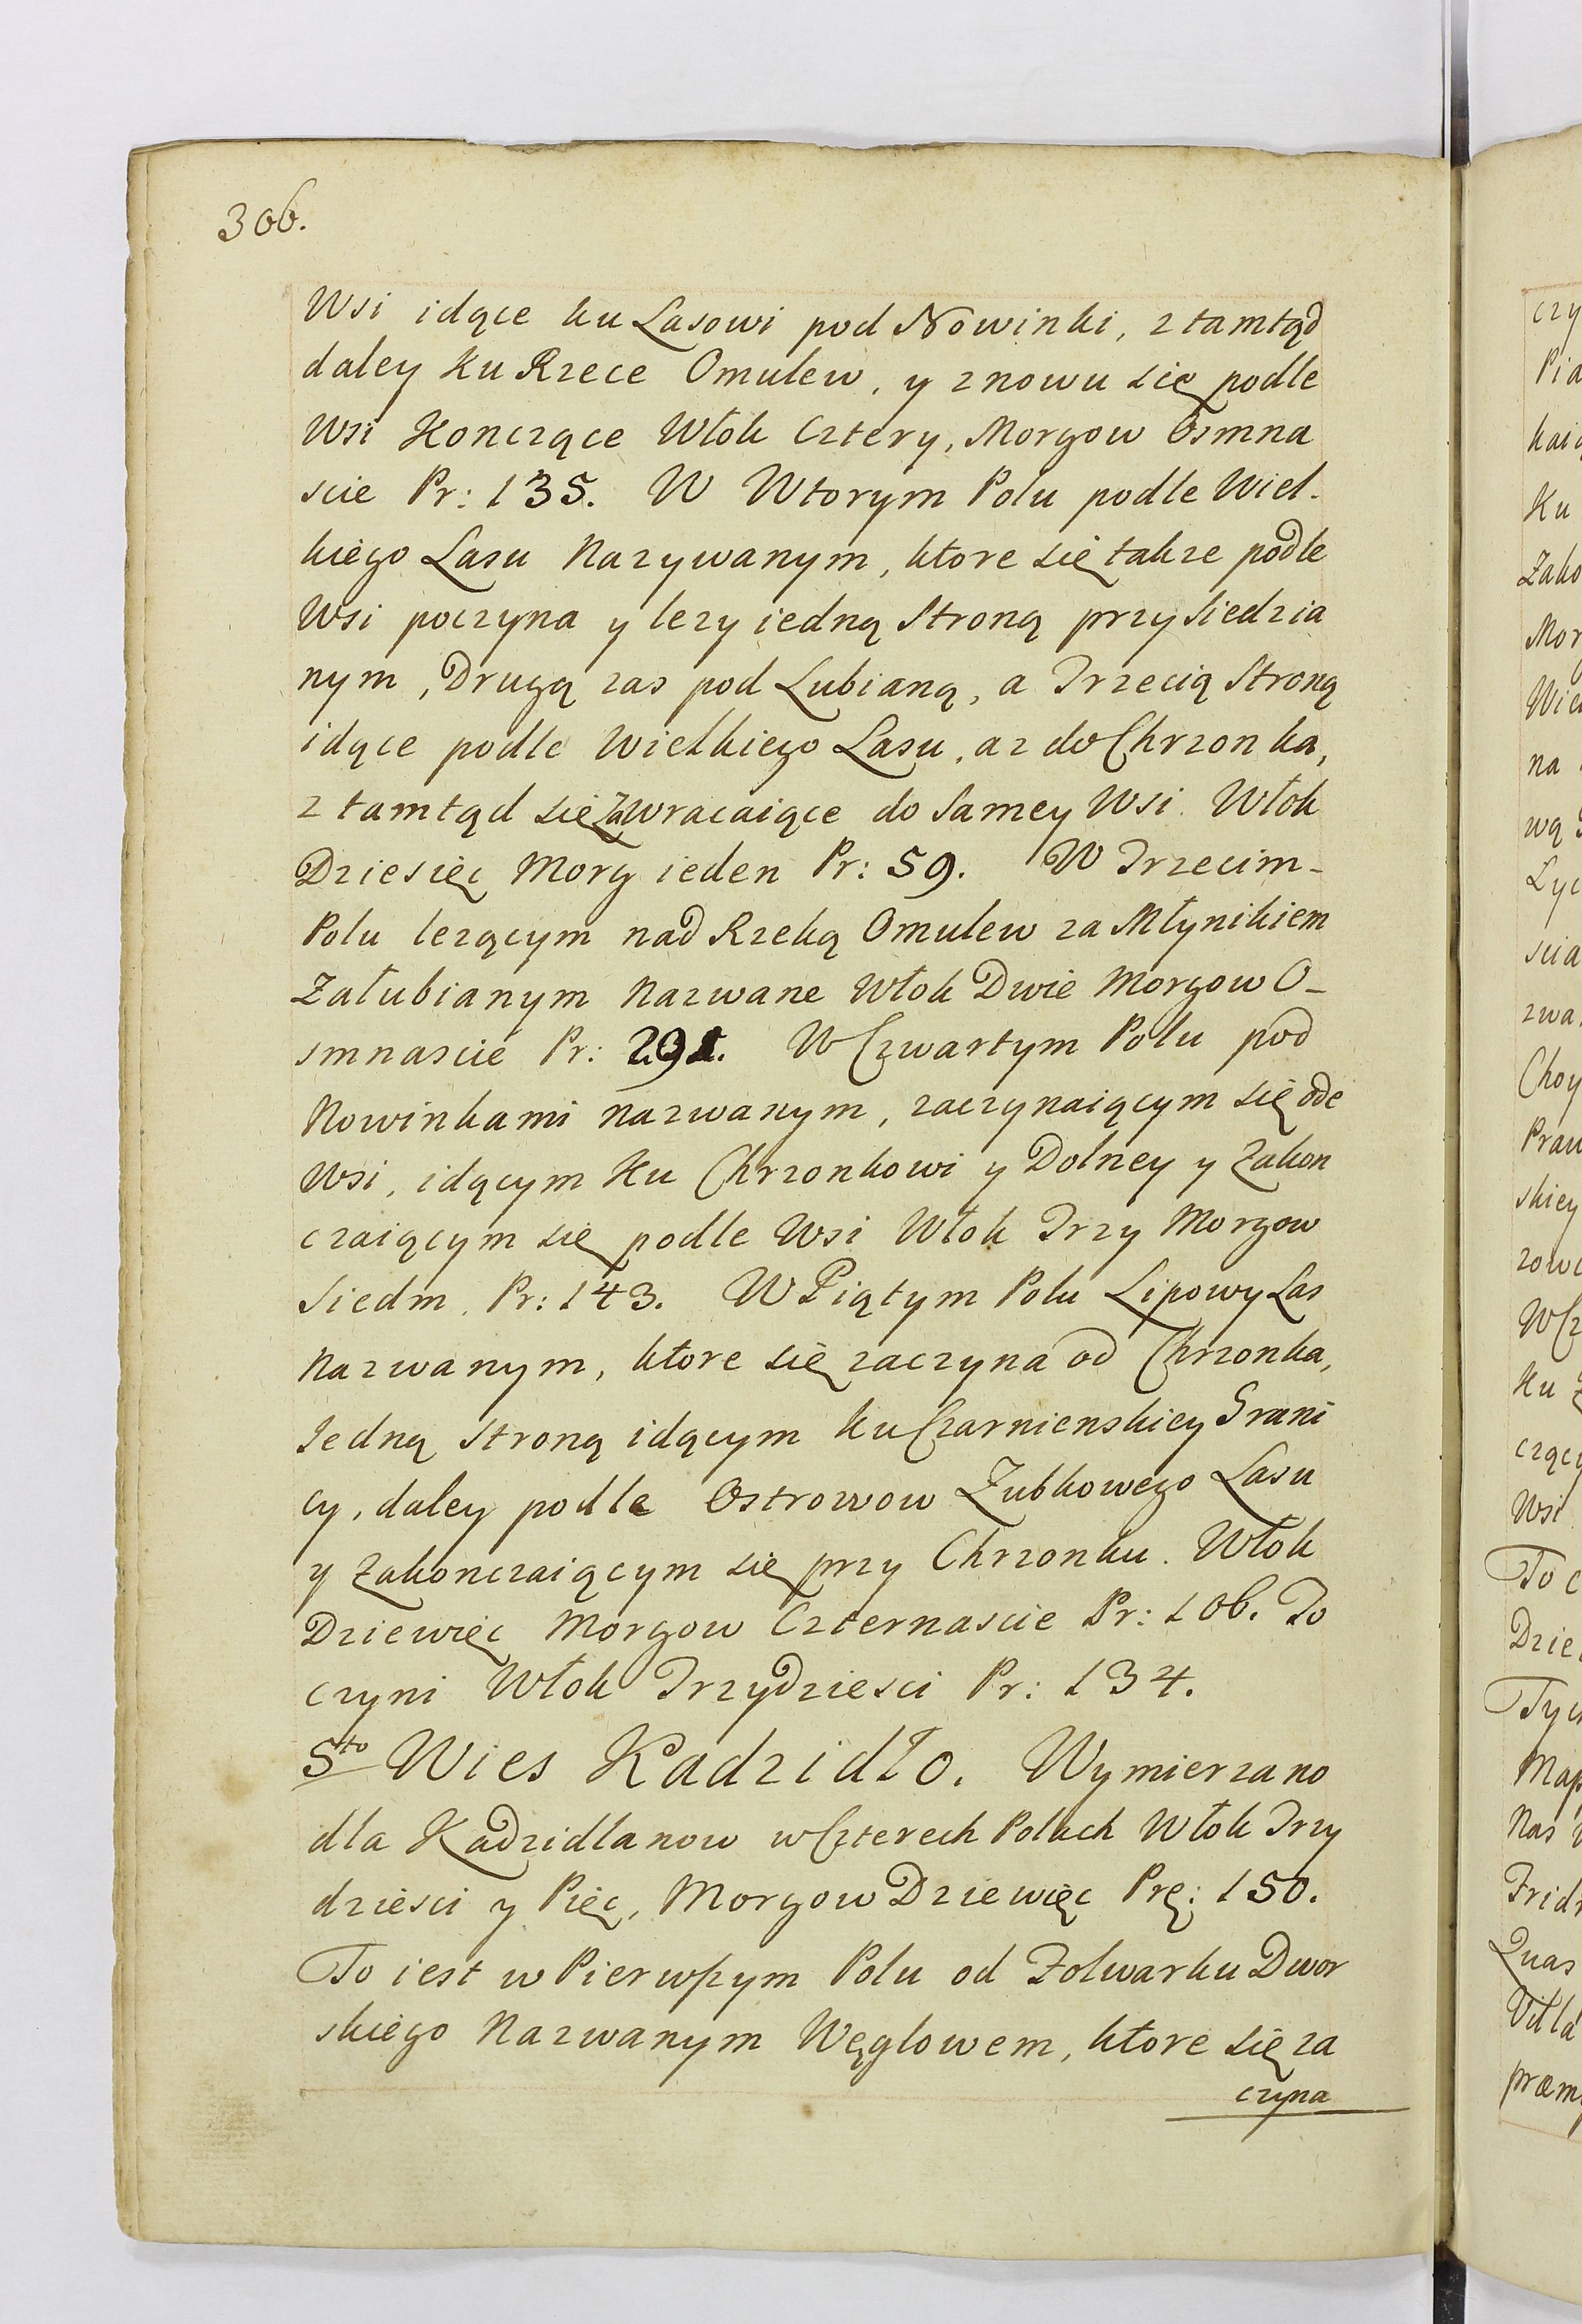 306.
Wsi idące ku Lasowi pod Nowinki, z tamtąd
daley Ku Rzece Omulew, y znowu się podle
Wsi Konczące Włok Cztery, Morgow Osmna
scie Pr: 135. W Wtorym Polu podle Wiel-
kiego Lasu Nazywanym, ktore się takze podle
Wsi poczyna y lezy iedną Stroną przy Siedzia
nym, Drugą zas pod Lubianą, a Trzecią Stroną
idące podle Wielkiego Lasu, az do Chrzonka,
z tamtąd się Zawracaiące do Samey Wsi. Włok
Dziesięc Morg ieden Pr: 59. W Trzecim-
Polu lezącym nad Rzeką Omulew za Młynikiem
Załubianym Nazwane Włok Dwie Morgow O-
smnascie Pr: 291. W Czwartym Polu pod
Nowinkami nazwanym, zaczynaiącym się ode
Wsi, idącym Ku Chrzonkowi y Dolney y Zakon
czaiącym się podle Wsi Włok Trzy Morgow
Siedm. Pr: 143. W Piątym Polu Lipowy Las
Nazwanym, ktore się zaczyna od Chrzonka,
Iedną Stroną idącym ku Czarnienskiey Grani
cy, daley podle Ostrowow Zubkowego Lasu
y Zakonczaiącym się przy Chrzonku. Włok
Dziewięc Morgow Czternascie Pr: 106. To
czyni Włok Trzydziesci Pr: 134.
5to Wies Kadzidło. Wymierzano
dla Kadzidlanow w Czterech Polach Włok Trzy
dziesci y Pięc, Morgow Dziewięc Prę: 150.
To iest w Pierwszym Polu od Folwarku Dwor
skiego Nazwanym Węglowem, ktore się za
czyna
czy
Pia
kaią
Ku
Zako
Mor
Wie
na
wą
Lyc
scia
zwa.
Choy
Praw
skiey
zowe
W Cz
Ku
czący
Wsi
To c
Dzie
Tyc
Map
Nas
Frid
Quas
Villa
præm